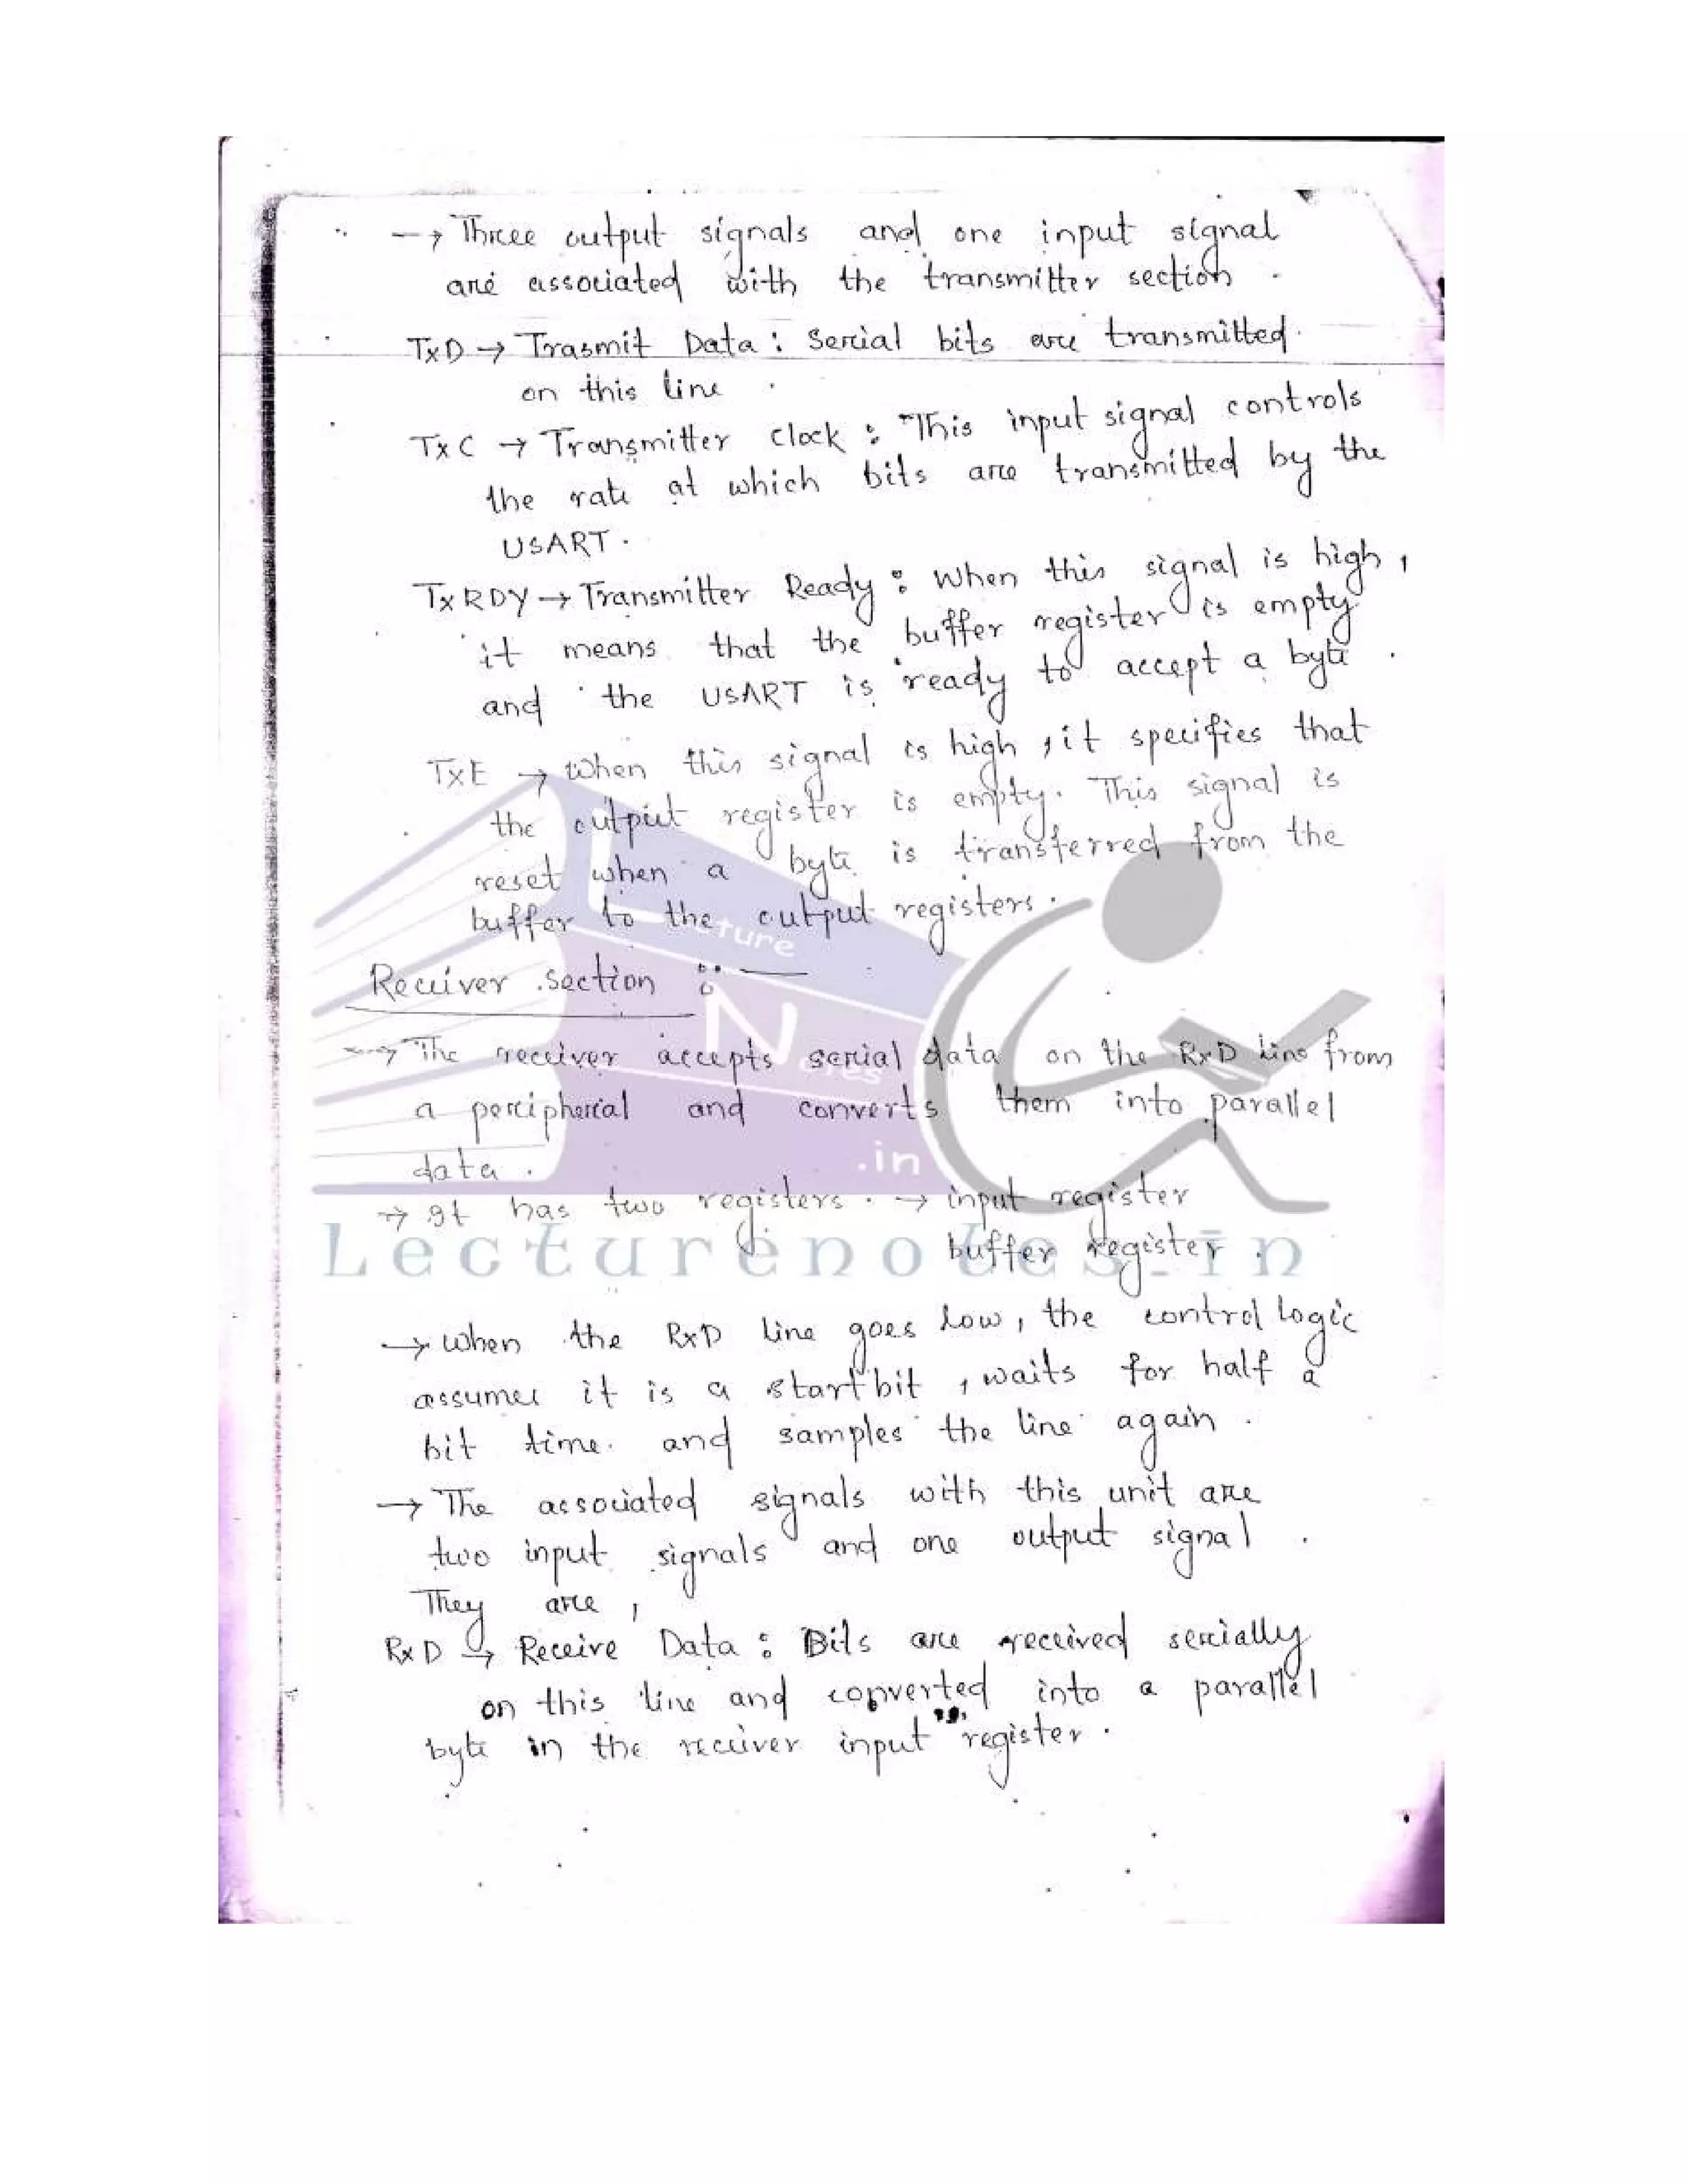 → Three output signals and one input signal
are associated with the transmitter section .
TxD → Trasmit Data : Serial bits are transmitted
on this line .
TxC → Transmitter Clock : This input signal controls
the rate at which bits are transmitted by the
USART .
TxRDY → Transmitter Ready : When this signal is high ,
it means that the buffer register is empty
and the USART is ready to accept a byte .
TxE → When this signal is high , it specifies that
the output register is empty . This signal is
reset when a byte is transferred from the
buffer to the output registers .
Receiver section :—
→ The receiver accepts serial data on the RxD line from
a peripherial and converts them into parallel
data .
→ It has two registers . → input register
buffer register .
→ When the RxD line goes low , the control logic
assumes it is a start bit , waits for half a
bit time . and samples the line again .
→ The associated signals with this unit are
two input signals and one output signal .
They are ,
RxD → Receive Data : Bits are received serially
on this line and converted into a parallel
byte in the receiver input register .
Lecture
Notes
.in
Lecturenotes.in